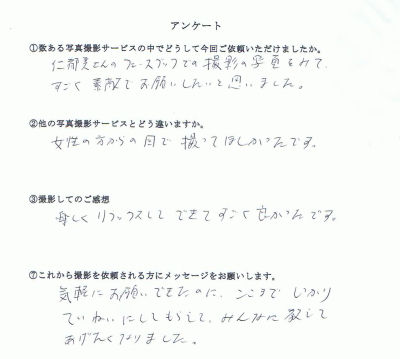 アンケート
①数ある写真撮影サービスの中でどうして今回ご依頼いただけましたか。
仁都美さんのフェースブックでの撮影の写真をみて、
すごく素敵でお願いしたいと思いました。
②他の写真撮影サービスとどう違いますか。
女性の方からの目で撮ってほしかったです。
③撮影してのご感想
楽しくリラックスしてできてすごく良かったです。
⑦これから撮影を依頼される方にメッセージをお願いします。
気軽にお願いできたのに、ここまでしっかり
ていねいにしてもらえて、みんなに教えて
あげたくなりました。